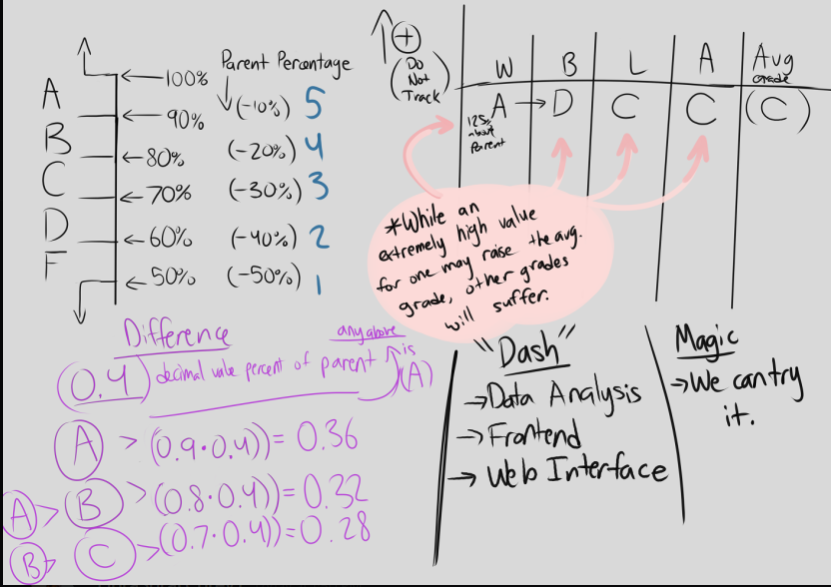 Parent Percentage
100%
A
90% (-10%) 5
B
80% (-20%) 4
C
70% (-30%) 3
D
60% (-40%) 2
F
50% (-50%) 1
+
(Do
Not
Track)
W B L A Avg
grade
A → D C C (C)
125%
above
Parent
*While an
extremely high value
for one may raise the avg.
grade, other grades
will suffer.
Difference
any above
is
(0.4) decimal value percent of parent (A)
A > (0.9·0.4)) = 0.36
A > B > (0.8·0.4)) = 0.32
B > C > (0.7·0.4)) = 0.28
"Dash"
→ Data Analysis
→ Frontend
→ Web Interface
Magic
→ We can try
it.